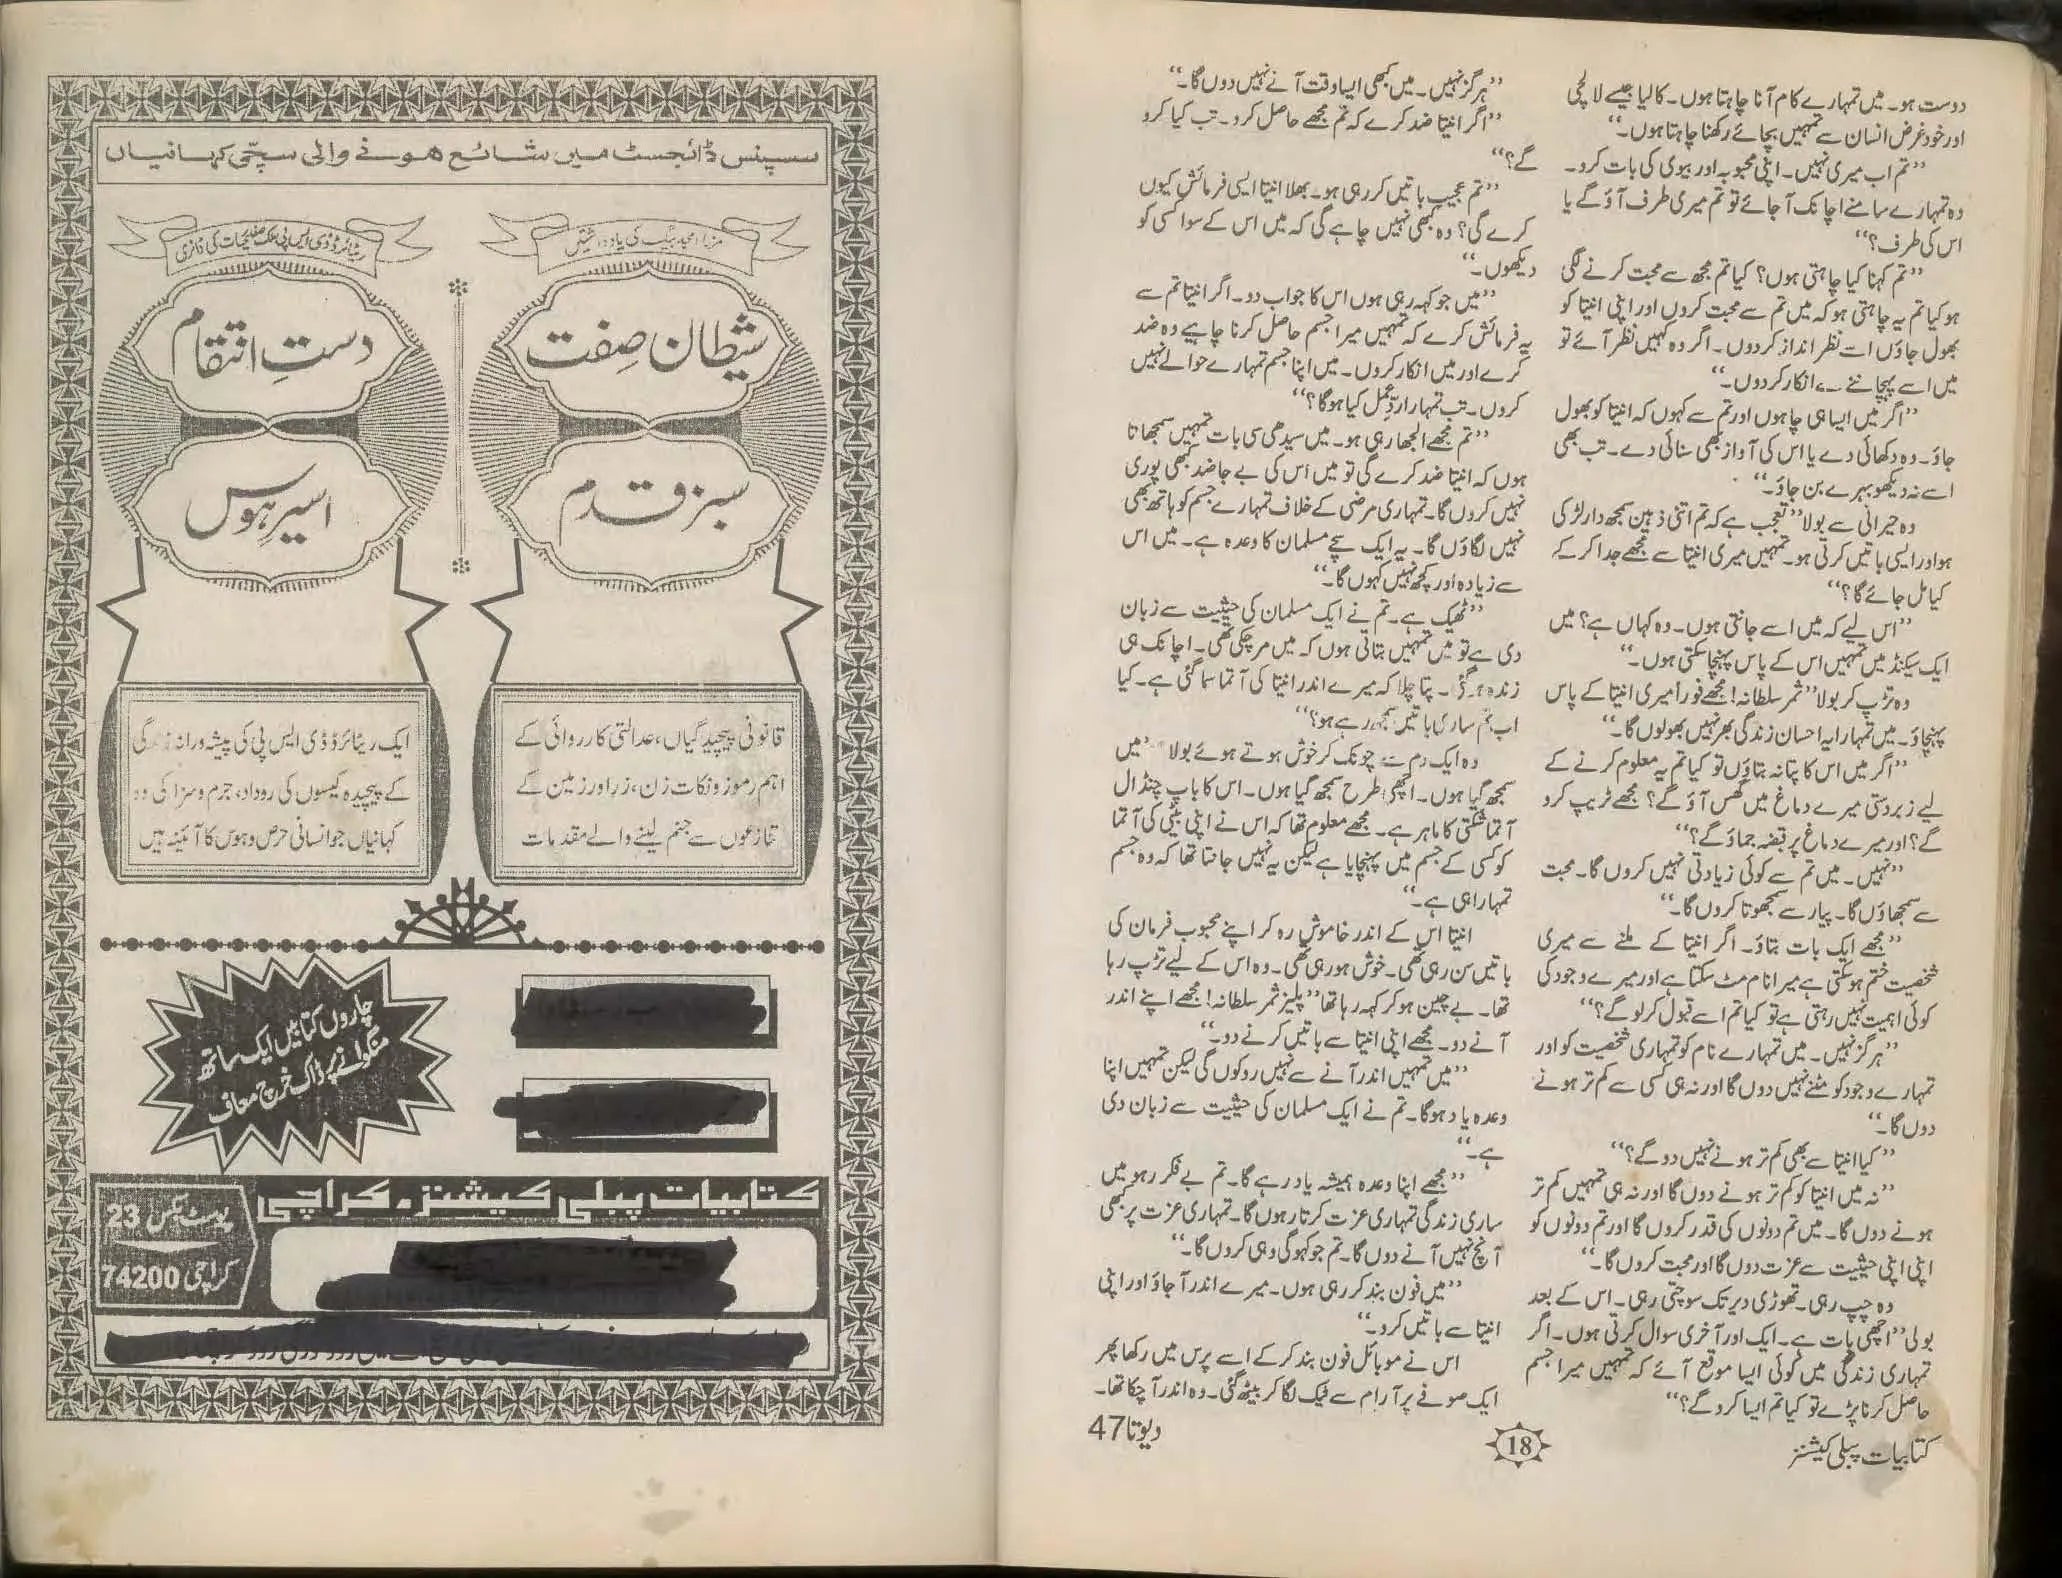 دوست ہو۔ میں تمہارے کام آنا چاہتا ہوں۔ کالیا جیسے لالچی
اور خود غرض انسان سے تمہیں بچائے رکھنا چاہتا ہوں۔‘‘
’’تم اب میری نہیں۔ اپنی محبوبہ اور بیوی کی بات کرو۔
وہ تمہارے سامنے اچانک آ جائے تو تم میری طرف آؤ گے یا
اس کی طرف؟‘‘
’’تم کہنا کیا چاہتی ہوں؟ کیا تم مجھ سے محبت کرنے لگی
ہو کیا تم یہ چاہتی ہو کہ میں تم سے محبت کروں اور اپنی انیتا کو
بھول جاؤں اسے نظر انداز کردوں۔ اگر وہ کہیں نظر آئے تو
میں اسے پہچاننے سے انکار کردوں۔‘‘
’’اگر میں ایسا ہی چاہوں اور تم سے کہوں کہ انیتا کو بھول
جاؤ۔ وہ دکھائی دے یا اس کی آواز بھی سنائی دے۔ تب بھی
اسے نہ دیکھو بہرے بن جاؤ۔‘‘
وہ حیرانی سے بولا ’’تعجب ہے کہ تم اتنی ذہین سمجھ دار لڑکی
ہو اور ایسی باتیں کرتی ہو۔ تمہیں میری انیتا سے مجھے جدا کر کے
کیا مل جائے گا؟‘‘
’’اس لیے کہ میں اسے جانتی ہوں۔ وہ کہاں ہے؟ میں
ایک سیکنڈ میں تمہیں اس کے پاس پہنچا سکتی ہوں۔‘‘
وہ تڑپ کر بولا ’’ثمر سلطانہ! مجھے فوراً میری انیتا کے پاس
پہنچاؤ۔ میں تمہارا یہ احسان زندگی بھر نہیں بھولوں گا۔‘‘
’’اگر میں اس کا پتا نہ بتاؤں تو کیا تم یہ معلوم کرنے کے
لیے زبردستی میرے دماغ میں گھس آؤ گے؟ مجھے ٹریپ کرو
گے؟ اور میرے دماغ پر قبضہ جماؤ گے؟‘‘
’’نہیں۔ میں تم سے کوئی زیادتی نہیں کروں گا۔ محبت
سے سمجھاؤں گا۔ پیار سے سمجھوتا کروں گا۔‘‘
’’مجھے ایک بات بتاؤ۔ اگر انیتا کے ملنے سے میری
شخصیت ختم ہو سکتی ہے میرا نام مٹ سکتا ہے اور میرے وجود کی
کوئی اہمیت نہیں رہتی ہے تو کیا تم اسے قبول کر لو گے؟‘‘
’’ہرگز نہیں۔ میں تمہارے نام کو تمہاری شخصیت کو اور
تمہارے وجود کو مٹنے نہیں دوں گا اور نہ ہی کسی سے کم تر ہونے
دوں گا۔‘‘
’’کیا انیتا سے بھی کم تر ہونے نہیں دو گے؟‘‘
’’نہ میں انیتا کو کم تر ہونے دوں گا اور نہ ہی تمہیں کم تر
ہونے دوں گا۔ میں تم دونوں کی قدر کروں گا اور تم دونوں کو
اپنی اپنی حیثیت سے عزت دوں گا اور محبت کروں گا۔‘‘
وہ چپ رہی۔ تھوڑی دیر تک سوچتی رہی۔ اس کے بعد
بولی ’’اچھی بات ہے۔ ایک اور آخری سوال کرتی ہوں۔ اگر
تمہاری زندگی میں کوئی ایسا موقع آئے کہ تمہیں میرا جسم
حاصل کرنا پڑے تو کیا تم ایسا کرو گے؟‘‘
’’ہرگز نہیں۔ میں کبھی ایسا وقت آنے نہیں دوں گا۔‘‘
’’اگر انیتا ضد کرے کہ تم مجھے حاصل کرو۔ تب کیا کرو
گے؟‘‘
’’تم عجیب باتیں کر رہی ہو۔ بھلا انیتا ایسی فرمائش کیوں
کرے گی؟ وہ کبھی نہیں چاہے گی کہ میں اس کے سوا کسی کو
دیکھوں۔‘‘
’’میں جو کہہ رہی ہوں اس کا جواب دو۔ اگر انیتا تم سے
یہ فرمائش کرے کہ تمہیں میرا جسم حاصل کرنا چاہیے وہ ضد
کرے اور میں انکار کروں۔ میں اپنا جسم تمہارے حوالے نہیں
کروں۔ تب تمہارا ردِّ عمل کیا ہو گا؟‘‘
’’تم مجھے الجھا رہی ہو۔ میں سیدھی سی بات تمہیں سمجھاتا
ہوں کہ انیتا ضد کرے گی تو میں اس کی بے جا ضد کبھی پوری
نہیں کروں گا۔ تمہاری مرضی کے خلاف تمہارے جسم کو ہاتھ بھی
نہیں لگاؤں گا۔ یہ ایک سچے مسلمان کا وعدہ ہے۔ میں اس
سے زیادہ اور کچھ نہیں کہوں گا۔‘‘
’’ٹھیک ہے۔ تم نے ایک مسلمان کی حیثیت سے زبان
دی ہے تو میں تمہیں بتاتی ہوں کہ میں مر چکی تھی۔ اچانک ہی
زندہ ہو گئی۔ پتا چلا کہ میرے اندر انیتا کی آتما سما گئی ہے۔ کیا
اب تم ساری باتیں سمجھ رہے ہو؟‘‘
وہ ایک دم سے چونک کر خوش ہوتے ہوئے بولا ’’میں
سمجھ گیا ہوں۔ اچھی طرح سمجھ گیا ہوں۔ اس کا باپ چنڈال
آتما شکتی کا ماہر ہے۔ مجھے معلوم تھا کہ اس نے اپنی بیٹی کی آتما
کو کسی کے جسم میں پہنچایا ہے لیکن یہ نہیں جانتا تھا کہ وہ جسم
تمہارا ہی ہے۔‘‘
انیتا اس کے اندر خاموش رہ کر اپنے محبوب فرمان کی
باتیں سن رہی تھی۔ خوش ہو رہی تھی۔ وہ اس کے لیے تڑپ رہا
تھا۔ بے چین ہو کر کہہ رہا تھا ’’پلیز ثمر سلطانہ! مجھے اپنے اندر
آنے دو۔ مجھے اپنی انیتا سے باتیں کرنے دو۔‘‘
’’میں تمہیں اندر آنے سے نہیں روکوں گی لیکن تمہیں اپنا
وعدہ یاد ہو گا۔ تم نے ایک مسلمان کی حیثیت سے زبان دی
ہے۔‘‘
’’مجھے اپنا وعدہ ہمیشہ یاد رہے گا۔ تم بے فکر رہو میں
ساری زندگی تمہاری عزت کرتا رہوں گا۔ تمہاری عزت پر کبھی
آنچ نہیں آنے دوں گا۔ تم جو کہو گی وہی کروں گا۔‘‘
’’میں فون بند کر رہی ہوں۔ میرے اندر آ جاؤ اور اپنی
انیتا سے باتیں کرو۔‘‘
اس نے موبائل فون بند کر کے اسے پرس میں رکھا پھر
ایک صوفے پر آرام سے ٹیک لگا کر بیٹھ گئی۔ وہ اندر آ چکا تھا۔
کتابیات پبلی کیشنز
18
دیوتا 47
سسپنس ڈائجسٹ میں شائع ہونے والی سچی کہانیاں
مرزا امجد بیگ کی یادداشتیں
شیطان صِفت
سبز قدم
قانونی پیچیدگیاں، عدالتی کارروائی کے
اہم رموز و نکات زن، زر اور زمین کے
تنازعوں سے جنم لینے والے مقدمات
ریٹائرڈ ڈی ایس پی ملک صفدر حیات کی ڈائری
دستِ انتقام
اسیرِ ہوس
ایک ریٹائرڈ ڈی ایس پی کی پیشہ ورانہ زندگی
کے پیچیدہ کیسوں کی روداد، جرم و سزا کی وہ
کہانیاں جو انسانی حرص و ہوس کا آئینہ ہیں
چاروں کتابیں ایک ساتھ
منگوانے پر ڈاک خرچ معاف
کتابیات پبلی کیشنز۔ کراچی
پوسٹ بکس 23
کراچی 74200